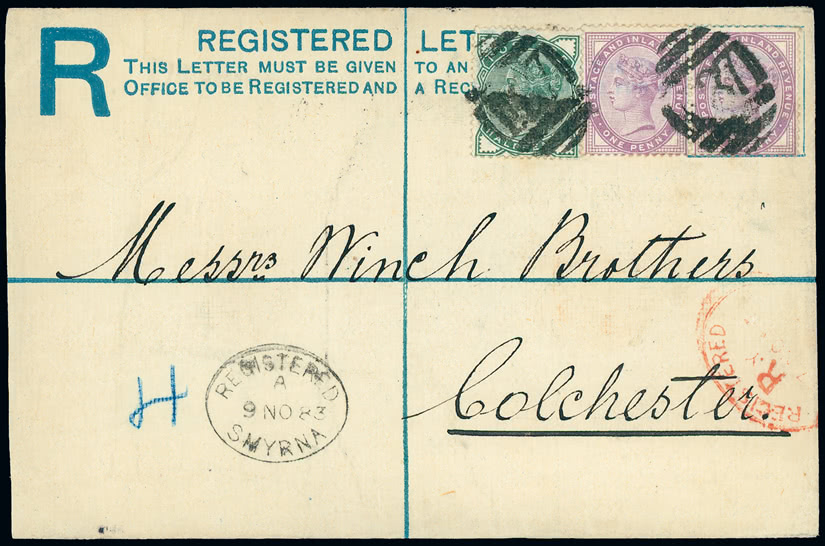 R
REGISTERED LET
THIS LETTER MUST BE GIVEN TO AN
OFFICE TO BE REGISTERED AND A REC
HALF
POSTAGE AND INLAND REVENUE
ONE PENNY
INLAND REVENUE
Messrs Winch Brothers
Colchester.
H
REGISTERED
A
9 NO 83
SMYRNA
REGISTERED
R